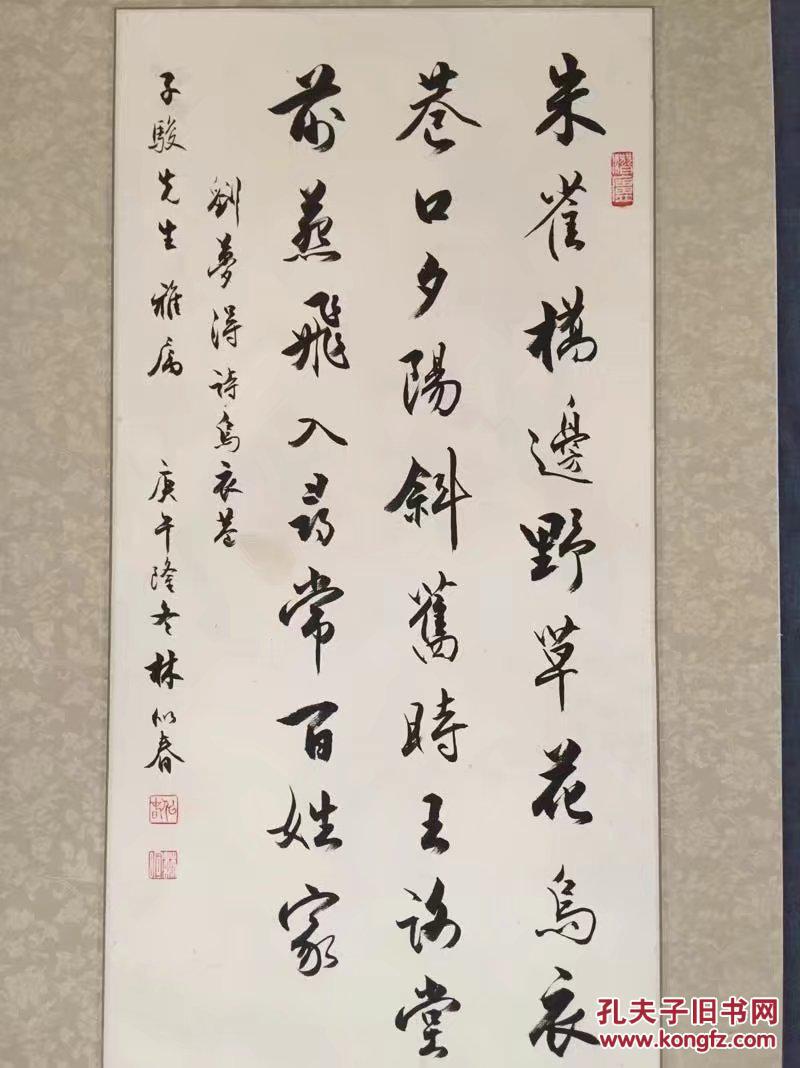 朱雀橋邊野草花烏衣
巷口夕陽斜舊時王謝堂
前燕飛入尋常百姓家
劉夢得詩烏衣巷
子駿先生雅屬
庚午隆冬林似春
孔夫子旧书网
www.kongfz.com